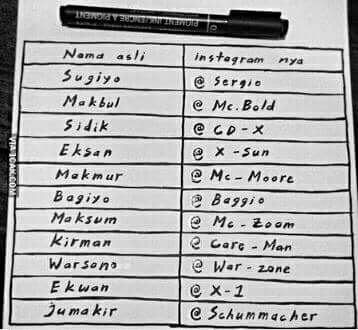 PIGMENT INK/ENCRE A PIGMENT
Nama asli instagram nya
Sugiyo @ Sergio
Makbul @ Mc.Bold
Sidik @ CD-X
Eksan @ X-Sun
Makmur @ Mc-Moore
Bagiyo @ Baggio
Maksum @ Mc-Zoom
Kirman @ Care-Man
Warsono @ War-zone
Ekwan @ X-1
Jumakir @ Schummacher
VIA 1CAK.COM